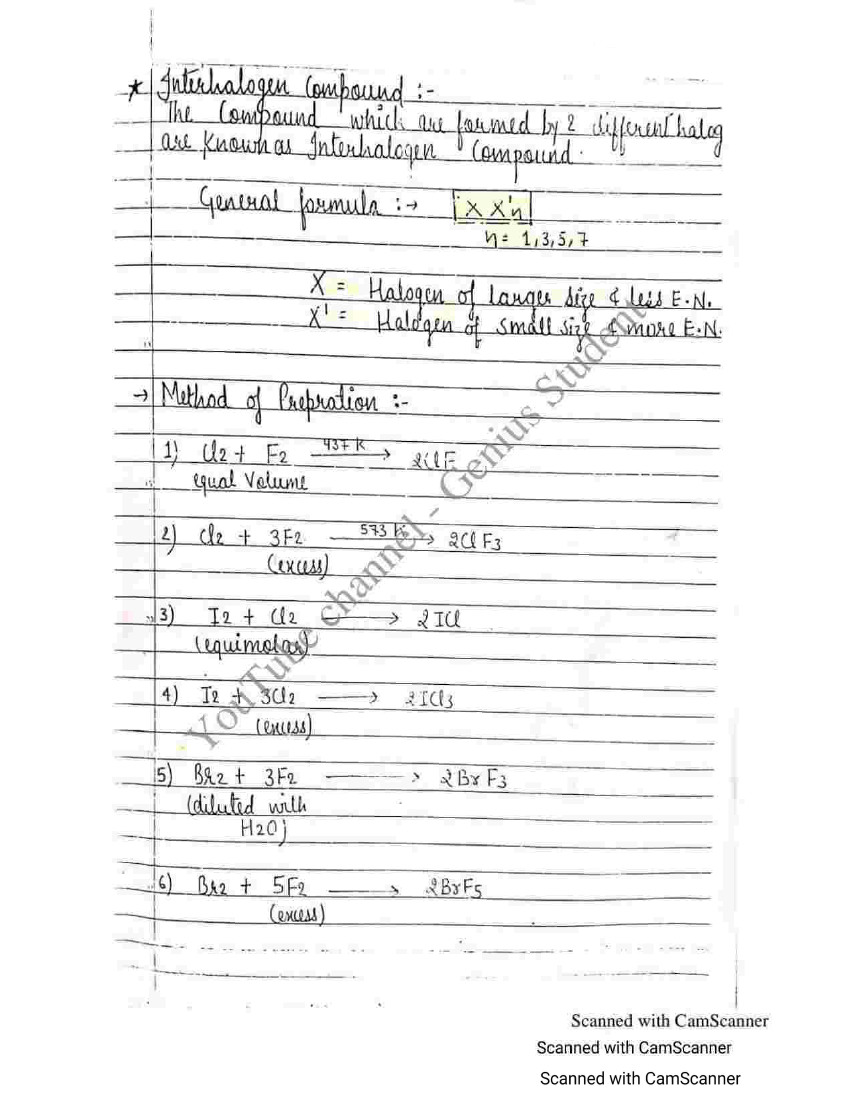 * Interhalogen Compound :-
The Compound which are formed by 2 different halog
are Known as Interhalogen Compound.
General formula :→ X X'n
n = 1,3,5,7
X = Halogen of larger size & less E.N.
X' = Halogen of small size & more E.N.
→ Method of Prepration :-
1) Cl2 + F2 437 K → 2ClF
equal Volume
2) Cl2 + 3F2 573 K → 2ClF3
(excess)
3) I2 + Cl2 → 2ICl
(equimolar)
4) I2 + 3Cl2 → 2ICl3
(excess)
5) Br2 + 3F2 → 2BrF3
(diluted with
H2O)
6) Br2 + 5F2 → 2BrF5
(excess)
YouTube channel - Genius Student
Scanned with CamScanner
Scanned with CamScanner
Scanned with CamScanner